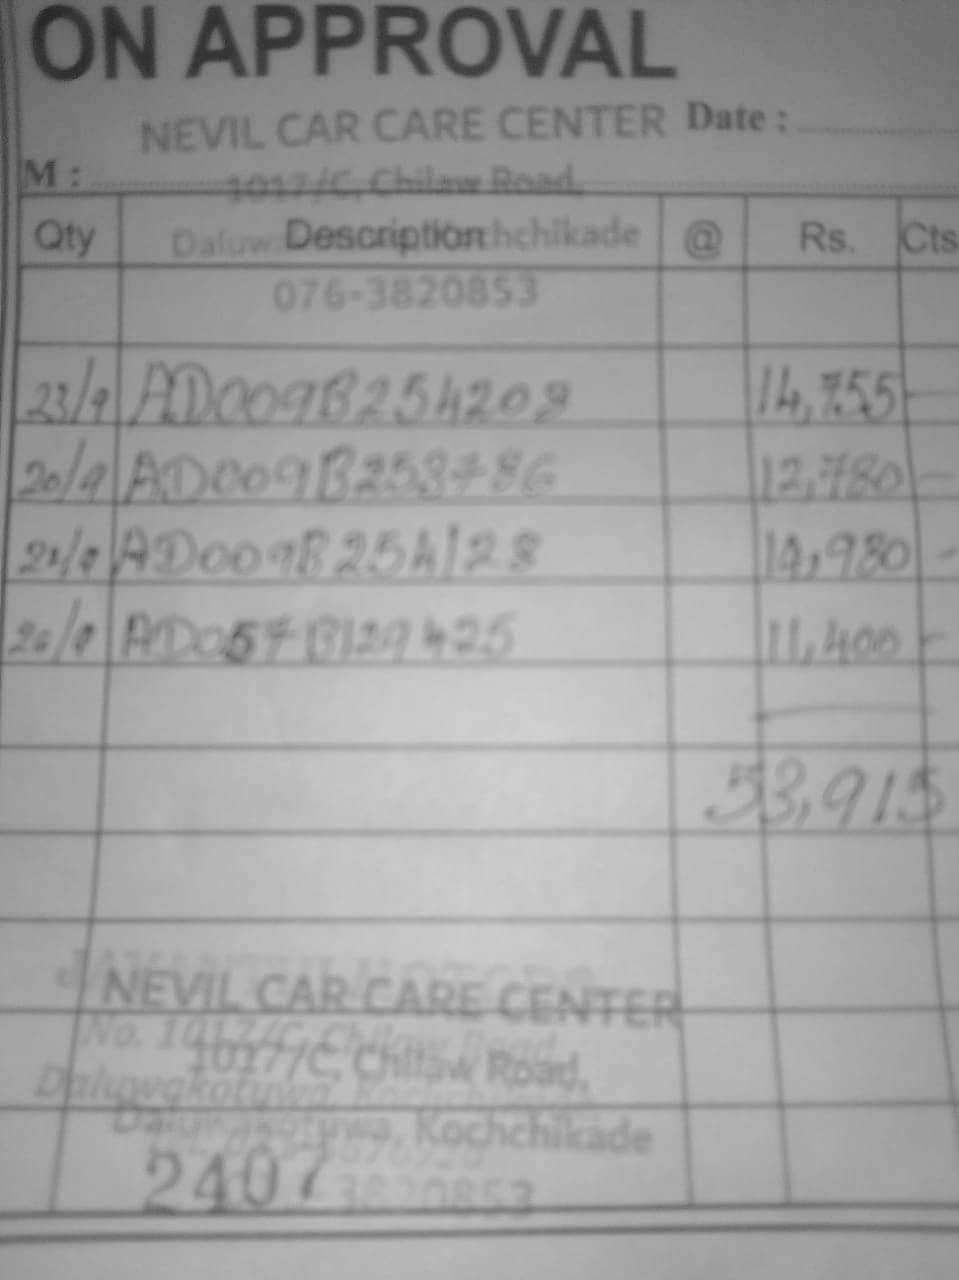 ON APPROVAL
NEVIL CAR CARE CENTER Date :
M :
1017/C, Chilaw Road,
Qty Description @ Rs. Cts
076-3820853
23/9 AD009B254208 14,755 -
20/9 AD009B253786 12,780 -
21/9 AD009B254128 14,980 -
26/9 AD057B129425 11,400 -
53,915
NEVIL CAR CARE CENTER
No. 1017/C, Chilaw Road
1017/C, Chilaw Road,
Daluwakotuwa, Kochchikade
2407
3820853